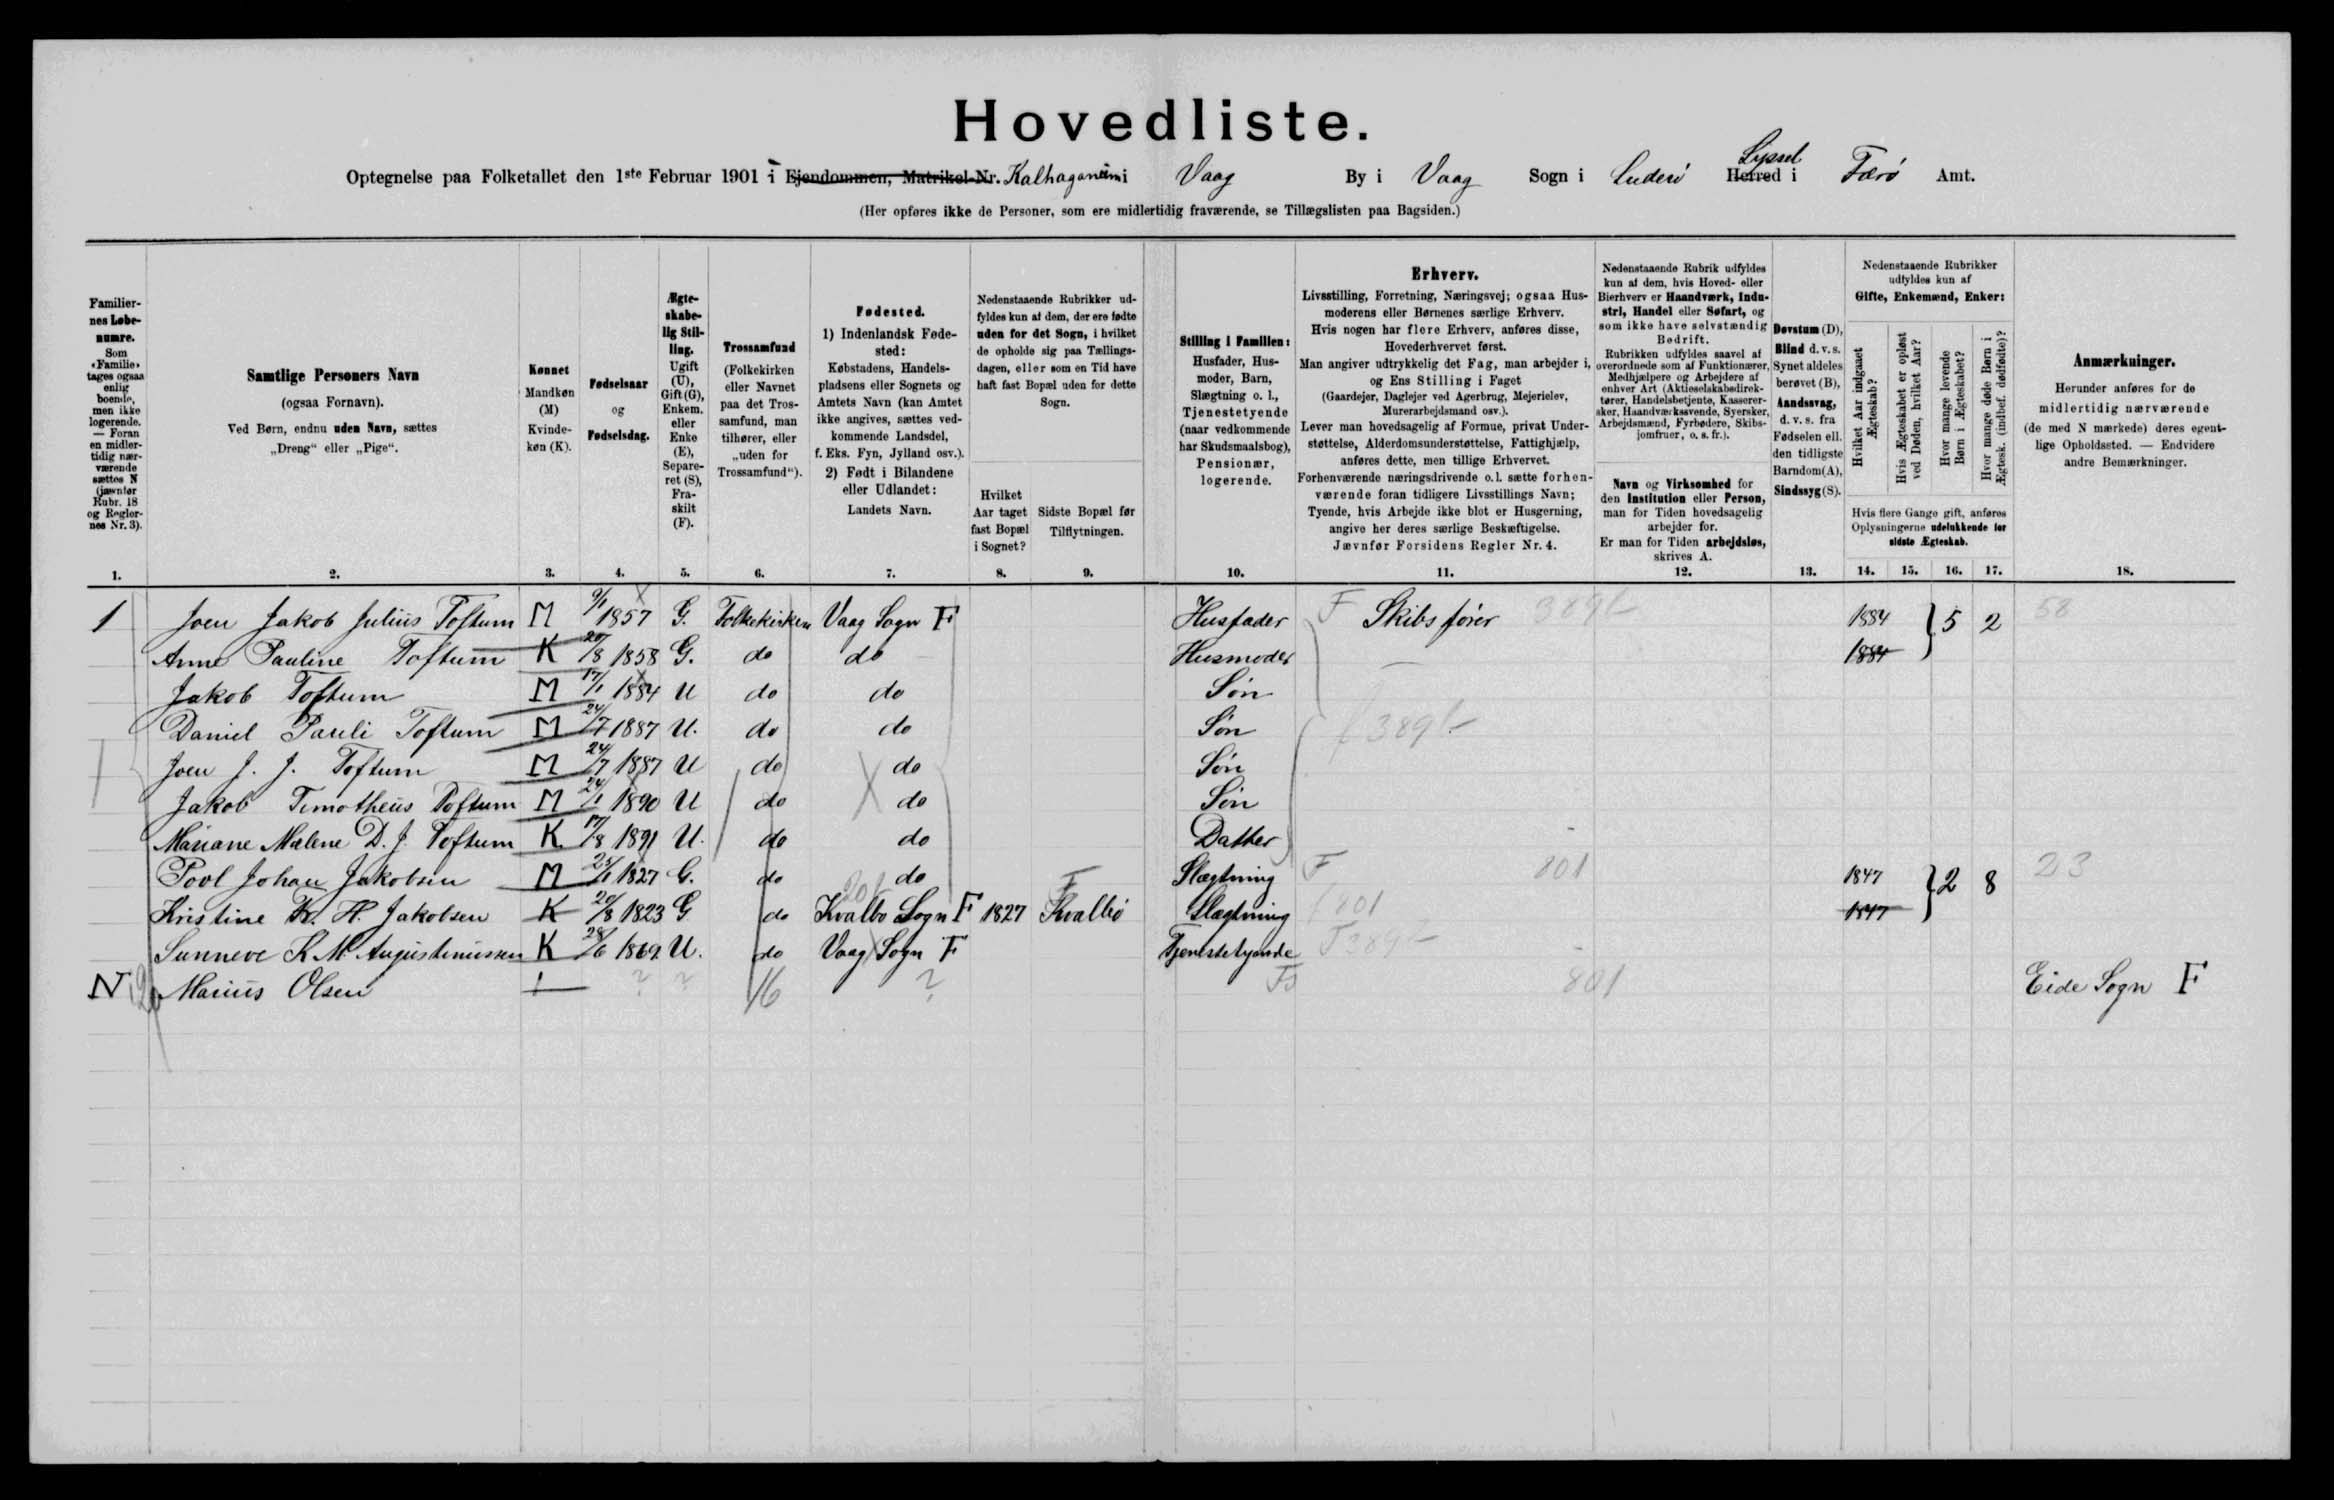 Hovedliste.
Optegnelse paa Folketallet den 1ste Februar 1901 i Ejendommen, Matrikel-Nr. i Vaag By i Vaag Sogn i Suderö Syssel Herred i Færö Amt.
(Her opføres ikke de Personer, som ere midlertidig fraværende, se Tillægslisten paa Bagsiden.)
Familiernes Løbenumre.
Som «Familie» tages ogsaa enlig boende, men ikke logerende. — Foran en midlertidig nærværende sættes N (jævnfør Rubr. 18 og Reglernes Nr. 3).
Samtlige Personers Navn
(ogsaa Fornavn).
Ved Børn, endnu uden Navn, sættes
„Dreng“ eller „Pige“.
Kønnet
Mandkøn (M) Kvindekøn (K).
Fødselsaar
og
Fødselsdag.
Ægteskabelig Stilling.
Ugift (U), Gift (G), Enkem. eller Enke (E), Separeret (S), Fraskilt (F).
Trossamfund
(Folkekirken eller Navnet paa det Trossamfund, man tilhører, eller „uden for Trossamfund“).
Fødested.
1) Indenlandsk Fødested:
Købstadens, Handelspladsens eller Sognets og Amtets Navn (kan Amtet ikke angives, sættes vedkommende Landsdel, f. Eks. Fyn, Jylland osv.).
2) Født i Bilandene eller Udlandet:
Landets Navn.
Nedenstaaende Rubrikker udfyldes kun af dem, der ere fødte uden for det Sogn, i hvilket de opholde sig paa Tællingsdagen, eller som en Tid have haft fast Bopæl uden for dette Sogn.
Hvilket Aar taget fast Bopæl i Sognet?
Sidste Bopæl før Tilflytningen.
Stilling i Familien:
Husfader, Husmoder, Barn, Slægtning o. l., Tjenestetyende (naar vedkommende har Skudsmaalsbog), Pensionær, logerende.
Erhverv.
Livsstilling, Forretning, Næringsvej; ogsaa Husmoderens eller Børnenes særlige Erhverv.
Hvis nogen har flere Erhverv, anføres disse, Hovederhvervet først.
Man angiver udtrykkelig det Fag, man arbejder i, og Ens Stilling i Faget
(Gaardejer, Daglejer ved Agerbrug, Mejerielev, Murerarbejdsmand osv.).
Lever man hovedsagelig af Formue, privat Understøttelse, Alderdomsunderstøttelse, Fattighjælp, anføres dette, men tillige Erhvervet.
Forhenværende næringsdrivende o.l. sætte forhenværende foran tidligere Livsstillings Navn;
Tyende, hvis Arbejde ikke blot er Husgerning, angive her deres særlige Beskæftigelse.
Jævnfør Forsidens Regler Nr. 4.
Nedenstaaende Rubrik udfyldes kun af dem, hvis Hoved- eller Bierhverv er Haandværk, Industri, Handel eller Søfart, og som ikke have selvstændig Bedrift.
Rubrikken udfyldes saavel af overordnede som af Funktionærer, Medhjælpere og Arbejdere af enhver Art (Aktieselskabsdirektører, Handelsbetjente, Kasserersker, Haandværkssvende, Syersker, Arbejdsmænd, Fyrbødere, Skibsjomfruer, o. s. fr.).
Navn og Virksomhed for den Institution eller Person, man for Tiden hovedsagelig arbejder for.
Er man for Tiden arbejdsløs, skrives A.
Døvstum (D), Blind d. v. s. Synet aldeles berøvet (B), Aandssvag, d. v. s. fra Fødselen ell. den tidligste Barndom (A), Sindssyg (S).
Nedenstaaende Rubrikker udfyldes kun af
Gifte, Enkemænd, Enker:
Hvilket Aar indgaaet Ægteskab?
Hvis Ægteskabet er opløst ved Døden, hvilket Aar?
Hvor mange levende Børn i Ægteskabet?
Hvor mange døde Børn i Ægtesk. (indbef. dødfødte)?
Hvis flere Gange gift, anføres Oplysningerne udelukkende for sidste Ægteskab.
Anmærkninger.
Herunder anføres for de midlertidig nærværende (de med N mærkede) deres egentlige Opholdssted. — Endvidere andre Bemærkninger.
1. 2. 3. 4. 5. 6. 7. 8. 9. 10. 11. 12. 13. 14. 15. 16. 17. 18.
1 Joen Jakob Julius Toftum M 9/1 1857 G. Folkekirken Vaag Sogn F Husfader F Skibsfører 389b 1884 5 2 58
Anne Pauline Toftum K 20/8 1858 G. do do Husmoder 1884
Jakob Toftum M 17/1 1884 U do do Søn
Daniel Pauli Toftum M 24/7 1887 U. do do Søn f 389b
Joen J. J. Toftum M 24/7 1887 U do do Søn
Jakob Timotheus Toftum M 24/1 1890 U do do Søn
Mariane Malene D. J. Toftum K 17/8 1891 U. do do Datter
Povl Johan Jakobsen M 25/1 1827 G. do do Slægtning F 801 1847 2 8 23
Kristine H. Jakobsen K 20/8 1823 G do Kvalbø Sogn F 1827 Kvalbø Slægtning f 801 1847
Sunneve K. M. Augustinussen K 28/6 1869 U. do Vaag Sogn F Tjenestetyende F 389b
N Marius Olsen ? ? 16 ? 801 Eide Sogn F